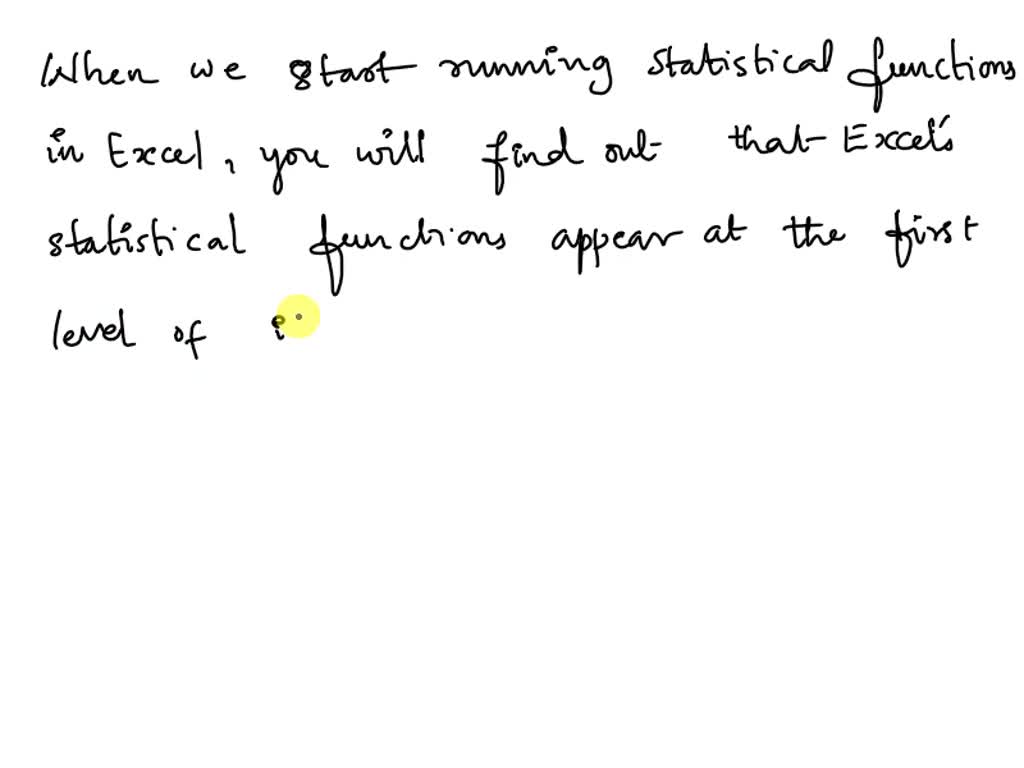 When we start running statistical functions
in Excel, you will find out that Excel's
statistical functions appear at the first
level of i